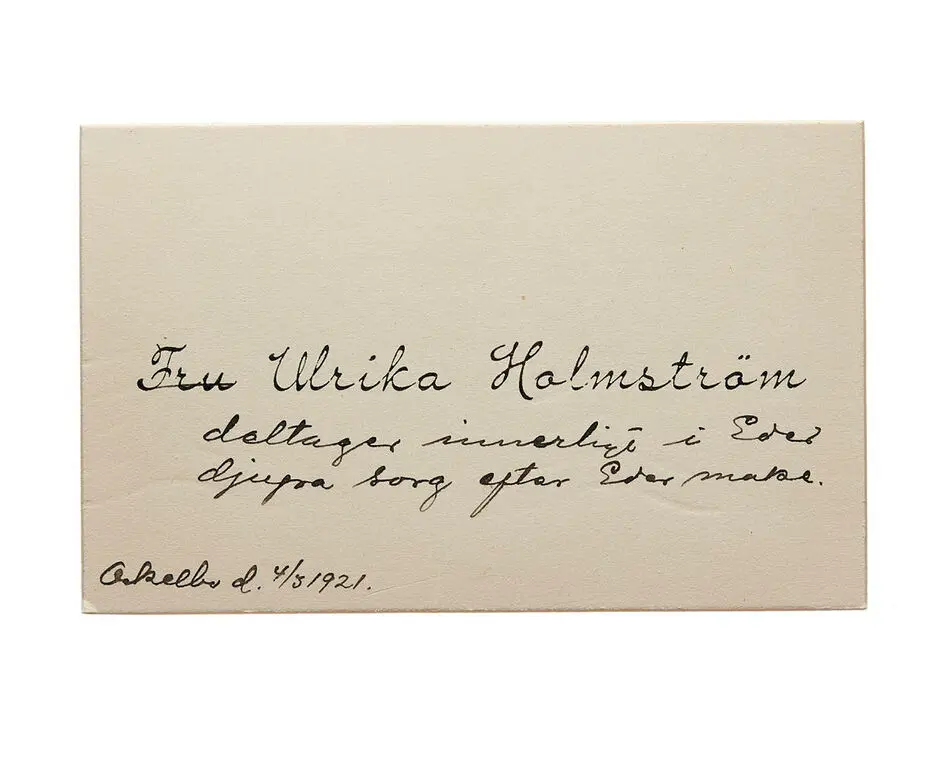 Fru Ulrika Holmström
deltager innerligt i Eder
djupa sorg efter Eder make.
Ockelbo d. 4/5 1921.